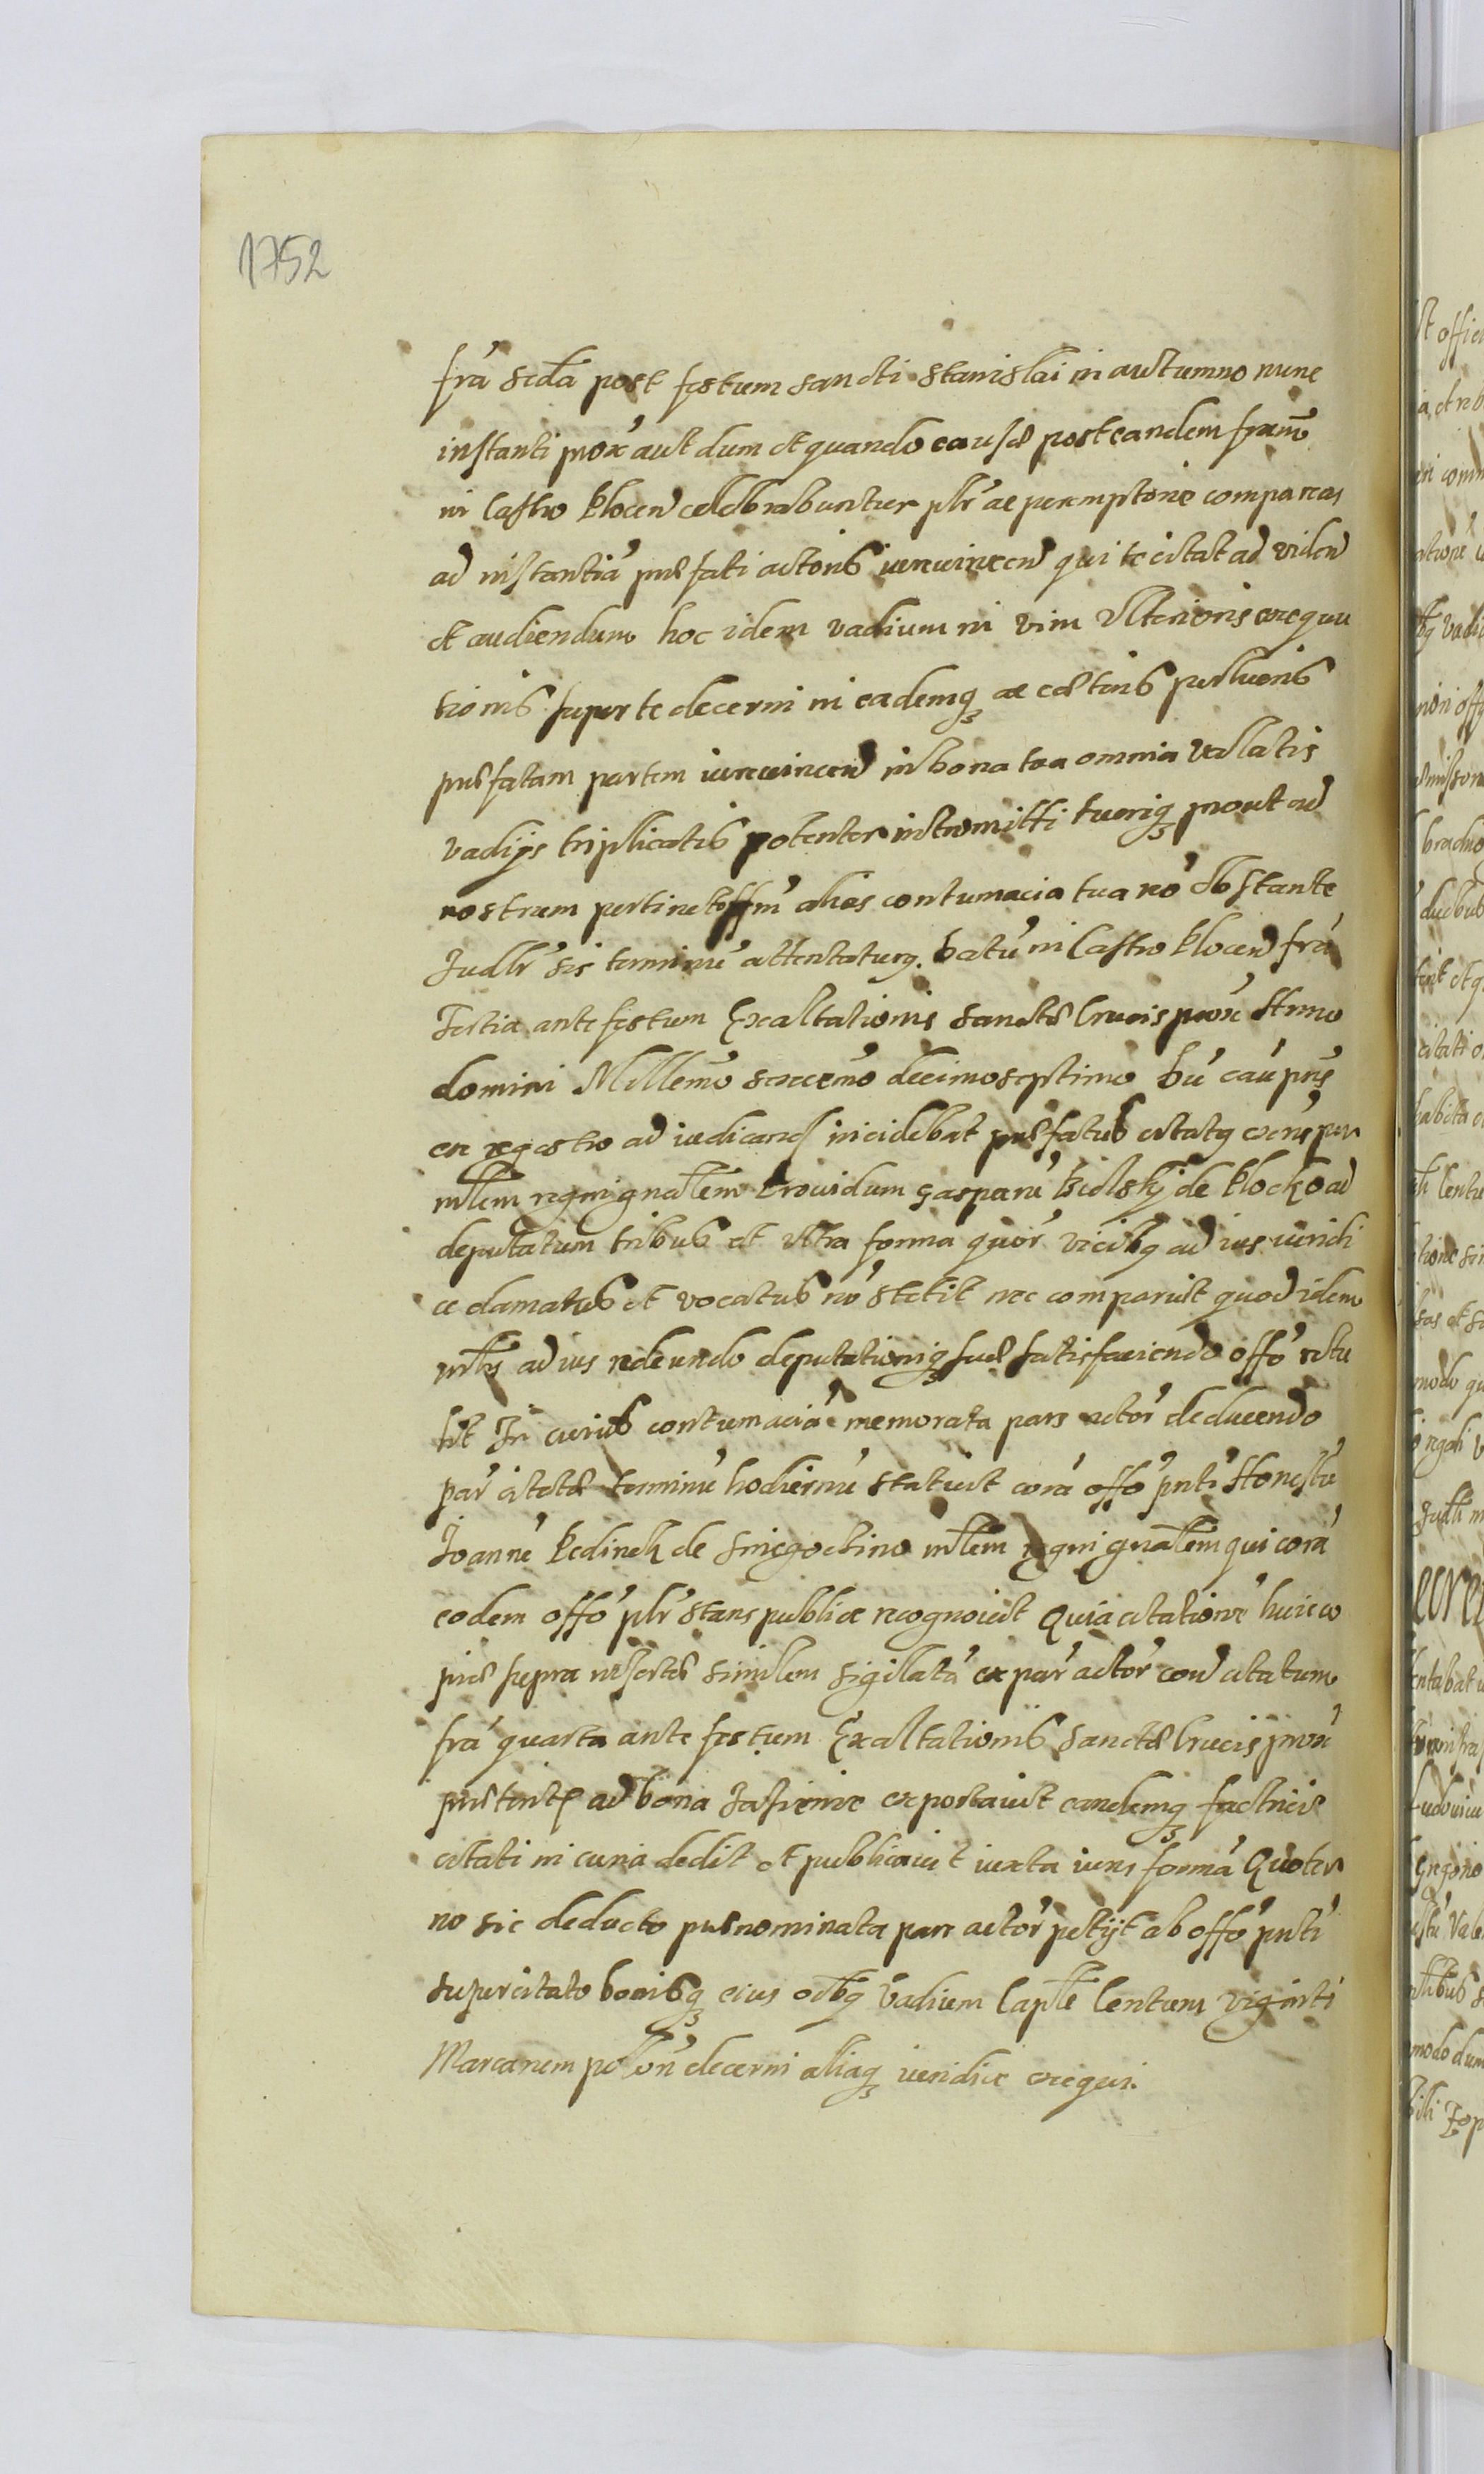 1752
fra scda post festum sancti Stanislai in autumno nunc
instanti prox aut dum et quando causæ post eandem fram
in Castro Plocen celebrabuntur plr ac peremptorie compareas
ad instantia præfati actoris iurevincen qui te citat ad viden
et audiendum hoc idem vadium in vim Ulterioris exequu
tionis super te decerni in eademq ac cæteris pulsionis
præfatam partem iurevincen in bona tua omnia vallatis
vadijs triplicatis potenter intromitti tueriq prout ad
nostrum pertinet offm alias contumacia tua no obstante
Judlr sis terminu attentaturq. Datu in Castro Plocen fra
Tertia ante festum Exaltationis Sanctæ Crucis prox Anno
domini Millemo sexcemo decimoseptimo Du cau pns
ex regestro ad iudicand incidebat præfatus citatq exns per
mlem regni gnalem Providum Gasparu Bielsky de Plocko ad
deputatum tribus et ultra forma quor vicibq ad ius iuridi
ce clamatus et vocatus no stetit nec comparuit quod idem
mls ad ius redeundo deputationiq suæ satisfaciendo offo retu
lit In cuius contumacia memorata pars actor deducendo
par citatæ terminu hodiernu statuit cora offo pnti Honestu
Joanne Pedinek de Sniegochino mlem regni gnalem qui cora
eodem offo plr stans publice recognovit Quia citatione huic co
piæ supra insertæ similem sigilata ex par actor con citatum
fra quarta ante festum Exaltationis Sanctæ Crucis prox
præterit ad bona Jasienie exportavit eandemq factrici
citati in curia dedit et publicavit iuxta iuris forma Quo ter
no sic deducto prænominata pars actor petijt ab offo pnti
super citato bonisq eius oibq Vadium Caple Centum viginti
Marcarum polon decerni aliaq iuridice exequi.